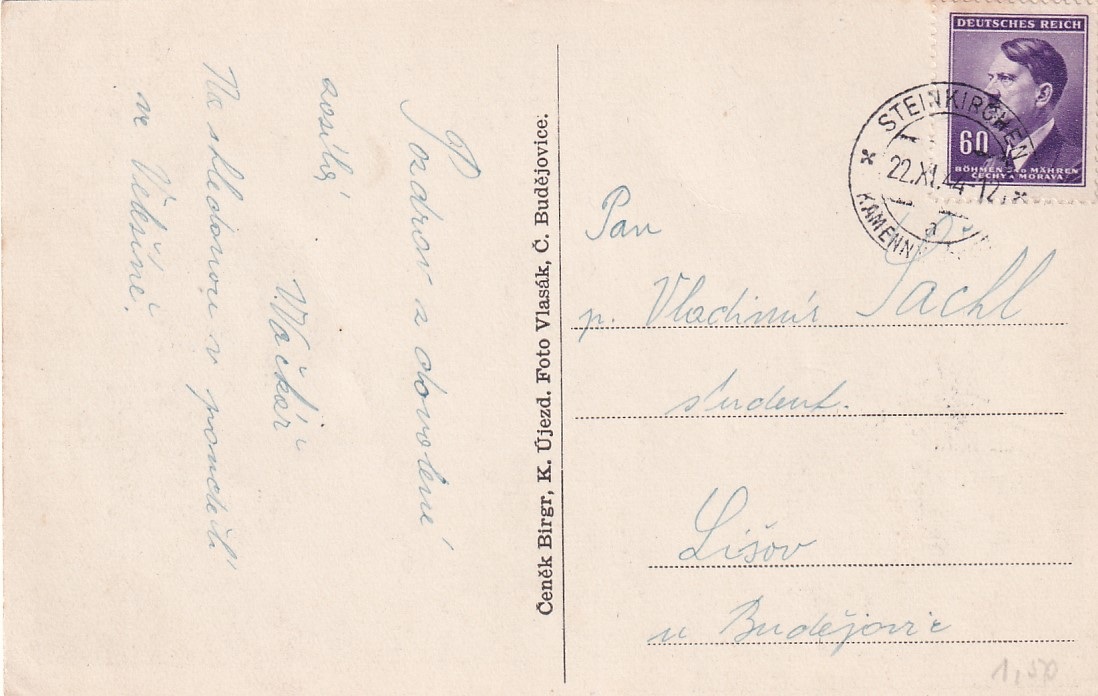 Pozdrav z dovolené
zasílá
Vačkář
Na shledanou v pondělí
ve Věšíně.
Čeněk Birgr, K. Újezd. Foto Vlasák, Č. Budějovice.
DEUTSCHES REICH
60
BÖHMEN UND MÄHREN
ČECHY A MORAVA
STEINKIRCHEN
22.XI.44-12
KAMENN
a
Pan
p. Vladimír Šachl
student.
Lišov
u Budějovic
1,50